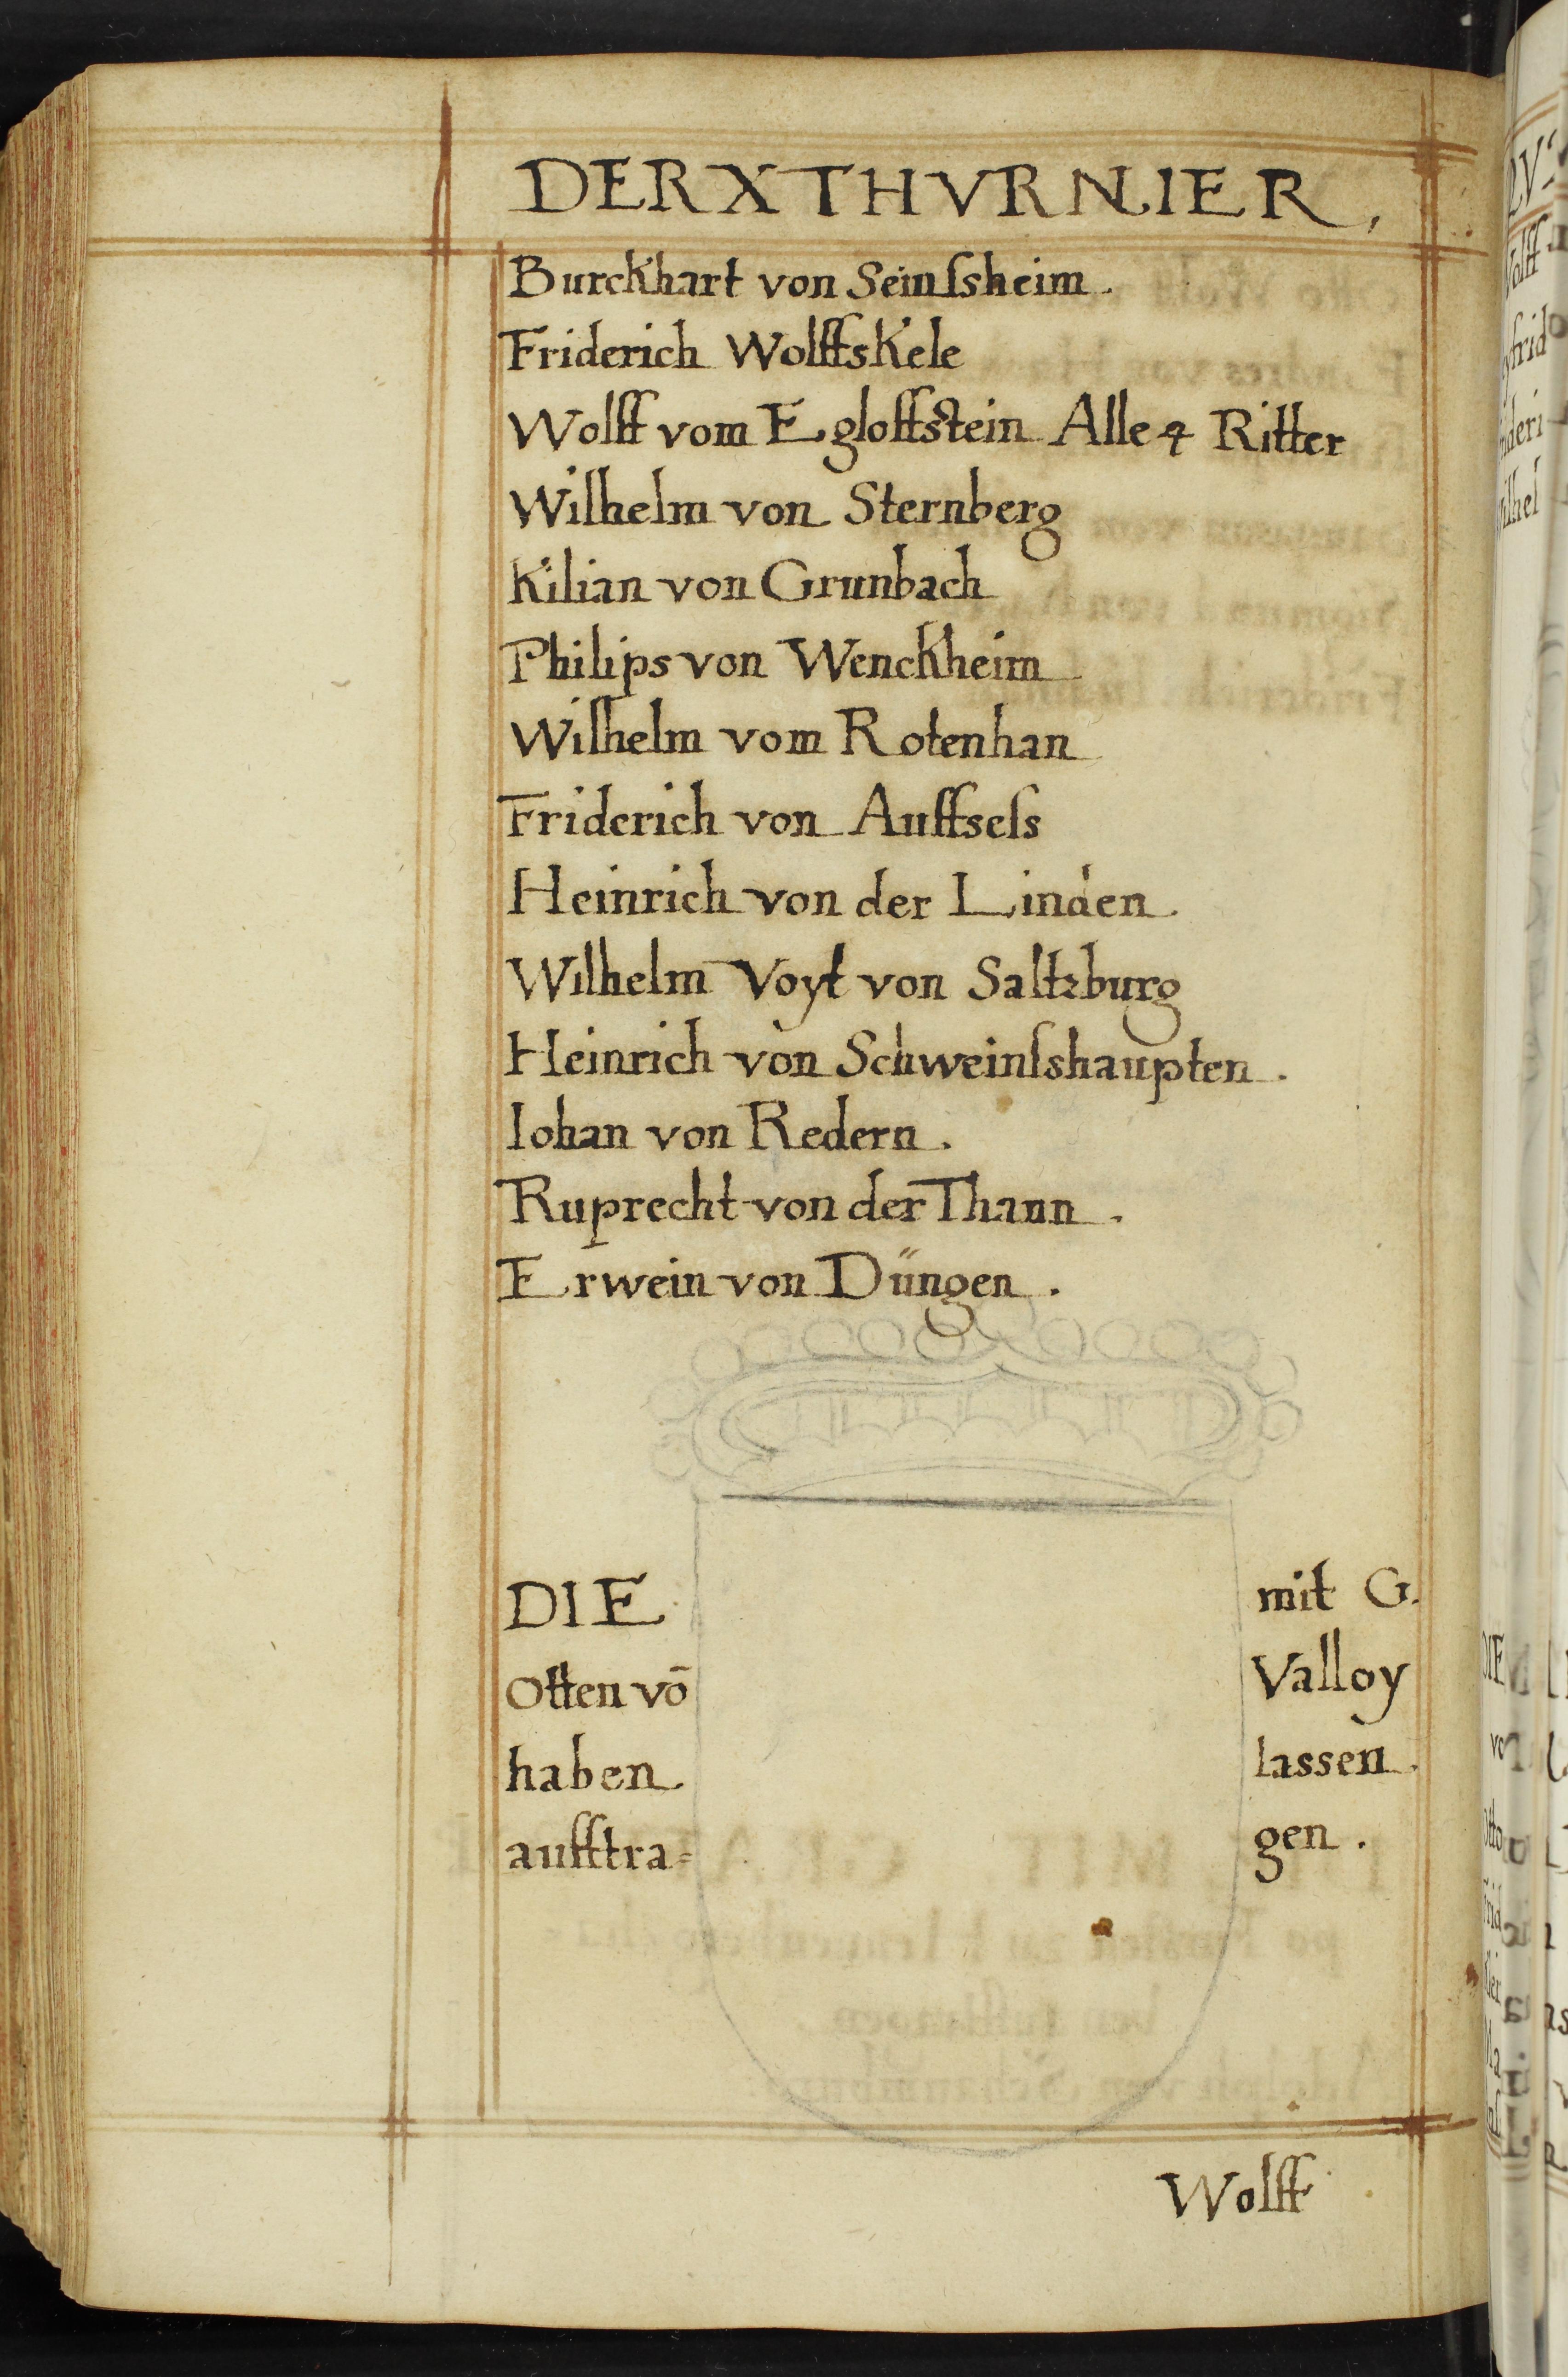 DER X THVRNIER,
Burckhart von Seinſsheim.
Friderich Wolffskele
Wolff vom Egloffstein Alle 4 Ritter
Wilhelm von Sternberg
Kilian von Grunbach
Philips von Wenckheim
Wilhelm vom Rotenhan
Friderich von Auffseſs
Heinrich von der Linden.
Wilhelm Voyt von Saltzburg
Heinrich von Schweinſshaupten.
Iohan von Redern.
Ruprecht von der Thann.
Erwein von Düngen.
DIE mit G.
Otten vō Valloy
haben lassen.
aufftra= gen.
Wolff